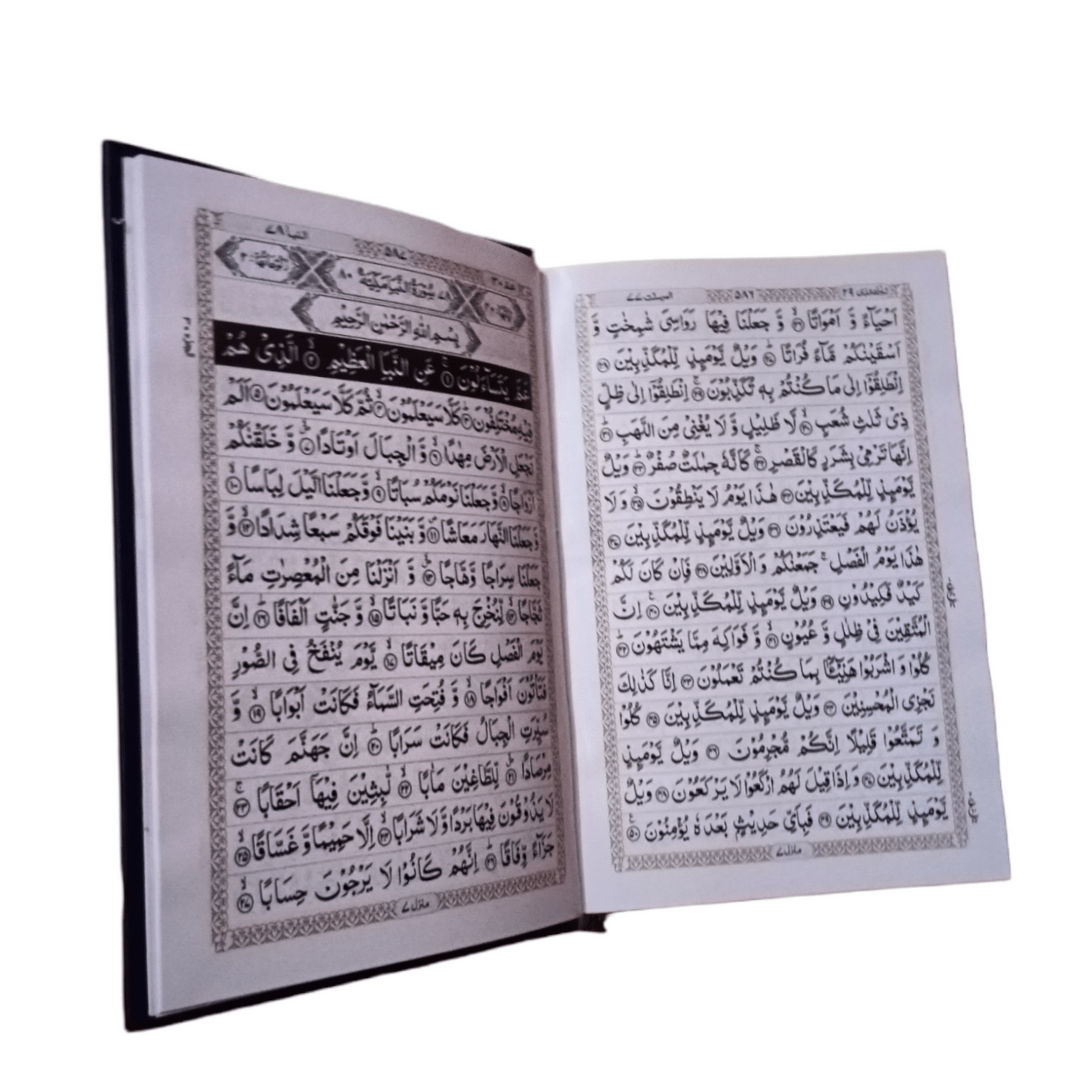 المرسلت ۷۷ ۵۹۶ ۲۹
اَحْيَآءً وَّ اَمْوَاتًا ۟ۙ۲۶ وَّ جَعَلْنَا فِيْهَا رَوَاسِيَ شٰمِخٰتٍ وَّ
اَسْقَيْنٰكُمْ مَّآءً فُرَاتًا ؕ۲۷ وَيْلٌ يَّوْمَىِٕذٍ لِّلْمُكَذِّبِيْنَ ۲۸
اِنْطَلِقُوْۤا اِلٰى مَا كُنْتُمْ بِهٖ تُكَذِّبُوْنَ ۚ۲۹ اِنْطَلِقُوْۤا اِلٰى ظِلٍّ
ذِيْ ثَلٰثِ شُعَبٍ ۙ۳۰ لَّا ظَلِيْلٍ وَّ لَا يُغْنِيْ مِنَ اللَّهَبِ ؕ۳۱
اِنَّهَا تَرْمِيْ بِشَرَرٍ كَالْقَصْرِ ۚ۳۲ كَاَنَّهٗ جِمٰلَتٌ صُفْرٌ ؕ۳۳ وَيْلٌ
يَّوْمَىِٕذٍ لِّلْمُكَذِّبِيْنَ ۳۴ هٰذَا يَوْمُ لَا يَنْطِقُوْنَ ۙ۳۵ وَ لَا
يُؤْذَنُ لَهُمْ فَيَعْتَذِرُوْنَ ۳۶ وَيْلٌ يَّوْمَىِٕذٍ لِّلْمُكَذِّبِيْنَ ۳۷
هٰذَا يَوْمُ الْفَصْلِ ۚ جَمَعْنٰكُمْ وَ الْاَوَّلِيْنَ ۳۸ فَاِنْ كَانَ لَكُمْ
كَيْدٌ فَكِيْدُوْنِ ۳۹ وَيْلٌ يَّوْمَىِٕذٍ لِّلْمُكَذِّبِيْنَ ۠۴۰ اِنَّ
الْمُتَّقِيْنَ فِيْ ظِلٰلٍ وَّ عُيُوْنٍ ۙ۴۱ وَّ فَوَاكِهَ مِمَّا يَشْتَهُوْنَ ؕ۴۲
كُلُوْا وَ اشْرَبُوْا هَنِيْٓـًٔۢا بِمَا كُنْتُمْ تَعْمَلُوْنَ ۴۳ اِنَّا كَذٰلِكَ
نَجْزِي الْمُحْسِنِيْنَ ۴۴ وَيْلٌ يَّوْمَىِٕذٍ لِّلْمُكَذِّبِيْنَ ۴۵ كُلُوْا
وَ تَمَتَّعُوْا قَلِيْلًا اِنَّكُمْ مُّجْرِمُوْنَ ۴۶ وَيْلٌ يَّوْمَىِٕذٍ
لِّلْمُكَذِّبِيْنَ ۴۷ وَ اِذَا قِيْلَ لَهُمُ ارْكَعُوْا لَا يَرْكَعُوْنَ ۴۸ وَيْلٌ
يَّوْمَىِٕذٍ لِّلْمُكَذِّبِيْنَ ۴۹ فَبِاَيِّ حَدِيْثٍۭ بَعْدَهٗ يُؤْمِنُوْنَ ۠۵۰
منزل ۷
عمّ ۳۰ ۵۹۷ النبا ۷۸
۷۸ سُوْرَةُ النَّبَاِ مَكِّيَّةٌ ۸۰
بِسْمِ اللّٰهِ الرَّحْمٰنِ الرَّحِيْمِ
عَمَّ يَتَسَآءَلُوْنَ ۚ۱ عَنِ النَّبَاِ الْعَظِيْمِ ۙ۲ الَّذِيْ هُمْ
فِيْهِ مُخْتَلِفُوْنَ ؕ۳ كَلَّا سَيَعْلَمُوْنَ ۙ۴ ثُمَّ كَلَّا سَيَعْلَمُوْنَ ۵ اَلَمْ
نَجْعَلِ الْاَرْضَ مِهٰدًا ۙ۶ وَّ الْجِبَالَ اَوْتَادًا ۙ۷ وَّ خَلَقْنٰكُمْ
اَزْوَاجًا ۙ۸ وَّ جَعَلْنَا نَوْمَكُمْ سُبَاتًا ۙ۹ وَّ جَعَلْنَا الَّيْلَ لِبَاسًا ۙ۱۰
وَّ جَعَلْنَا النَّهَارَ مَعَاشًا ۪۱۱ وَّ بَنَيْنَا فَوْقَكُمْ سَبْعًا شِدَادًا ۙ۱۲ وَّ
جَعَلْنَا سِرَاجًا وَّهَّاجًا ۪ۙ۱۳ وَّ اَنْزَلْنَا مِنَ الْمُعْصِرٰتِ مَآءً
ثَجَّاجًا ۙ۱۴ لِّنُخْرِجَ بِهٖ حَبًّا وَّ نَبَاتًا ۙ۱۵ وَّ جَنّٰتٍ اَلْفَافًا ؕ۱۶ اِنَّ
يَوْمَ الْفَصْلِ كَانَ مِيْقَاتًا ۙ۱۷ يَّوْمَ يُنْفَخُ فِي الصُّوْرِ
فَتَاْتُوْنَ اَفْوَاجًا ۙ۱۸ وَّ فُتِحَتِ السَّمَآءُ فَكَانَتْ اَبْوَابًا ۙ۱۹ وَّ
سُيِّرَتِ الْجِبَالُ فَكَانَتْ سَرَابًا ؕ۲۰ اِنَّ جَهَنَّمَ كَانَتْ
مِرْصَادًا ۪ۙ۲۱ لِّلطَّاغِيْنَ مَاٰبًا ۙ۲۲ لّٰبِثِيْنَ فِيْهَاۤ اَحْقَابًا ۚ۲۳
لَا يَذُوْقُوْنَ فِيْهَا بَرْدًا وَّ لَا شَرَابًا ۙ۲۴ اِلَّا حَمِيْمًا وَّ غَسَّاقًا ۙ۲۵
جَزَآءً وِّفَاقًا ؕ۲۶ اِنَّهُمْ كَانُوْا لَا يَرْجُوْنَ حِسَابًا ۙ۲۷
منزل ۷